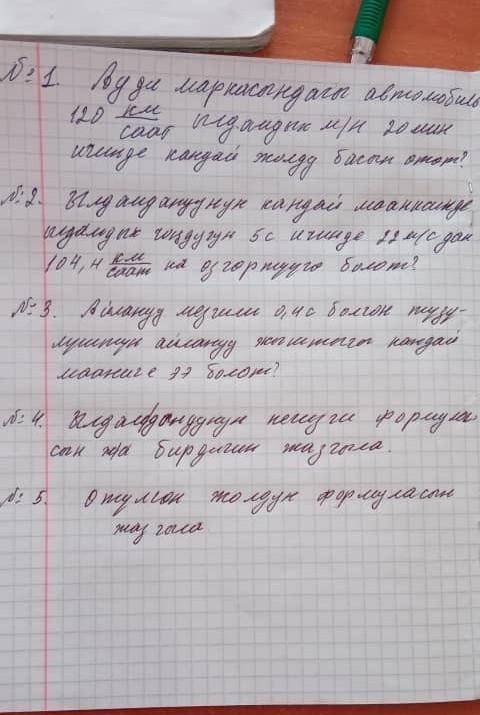 № 1. Ауди маркасындагы автомобиль
120 км/саат ылдамдык м/н 20 мин
ичинде кандай жолду басып отот?
№ 2. Ылдамдануунун кандай маанисинде
ылдамдык чондугун 5с ичинде 22 м/с дан
104,4 км/саат на озгортууго болот?
№ 3. Айлануу мезгили 0,4с болгон тузу-
луштун айлануу жыштыгы кандай
мааниге ээ болот?
№ 4. Ылдамдануунун негизги формула-
сын ж/а бирдигин жазгыла.
№ 5. Отулгон жолдун формуласын
жазгыла